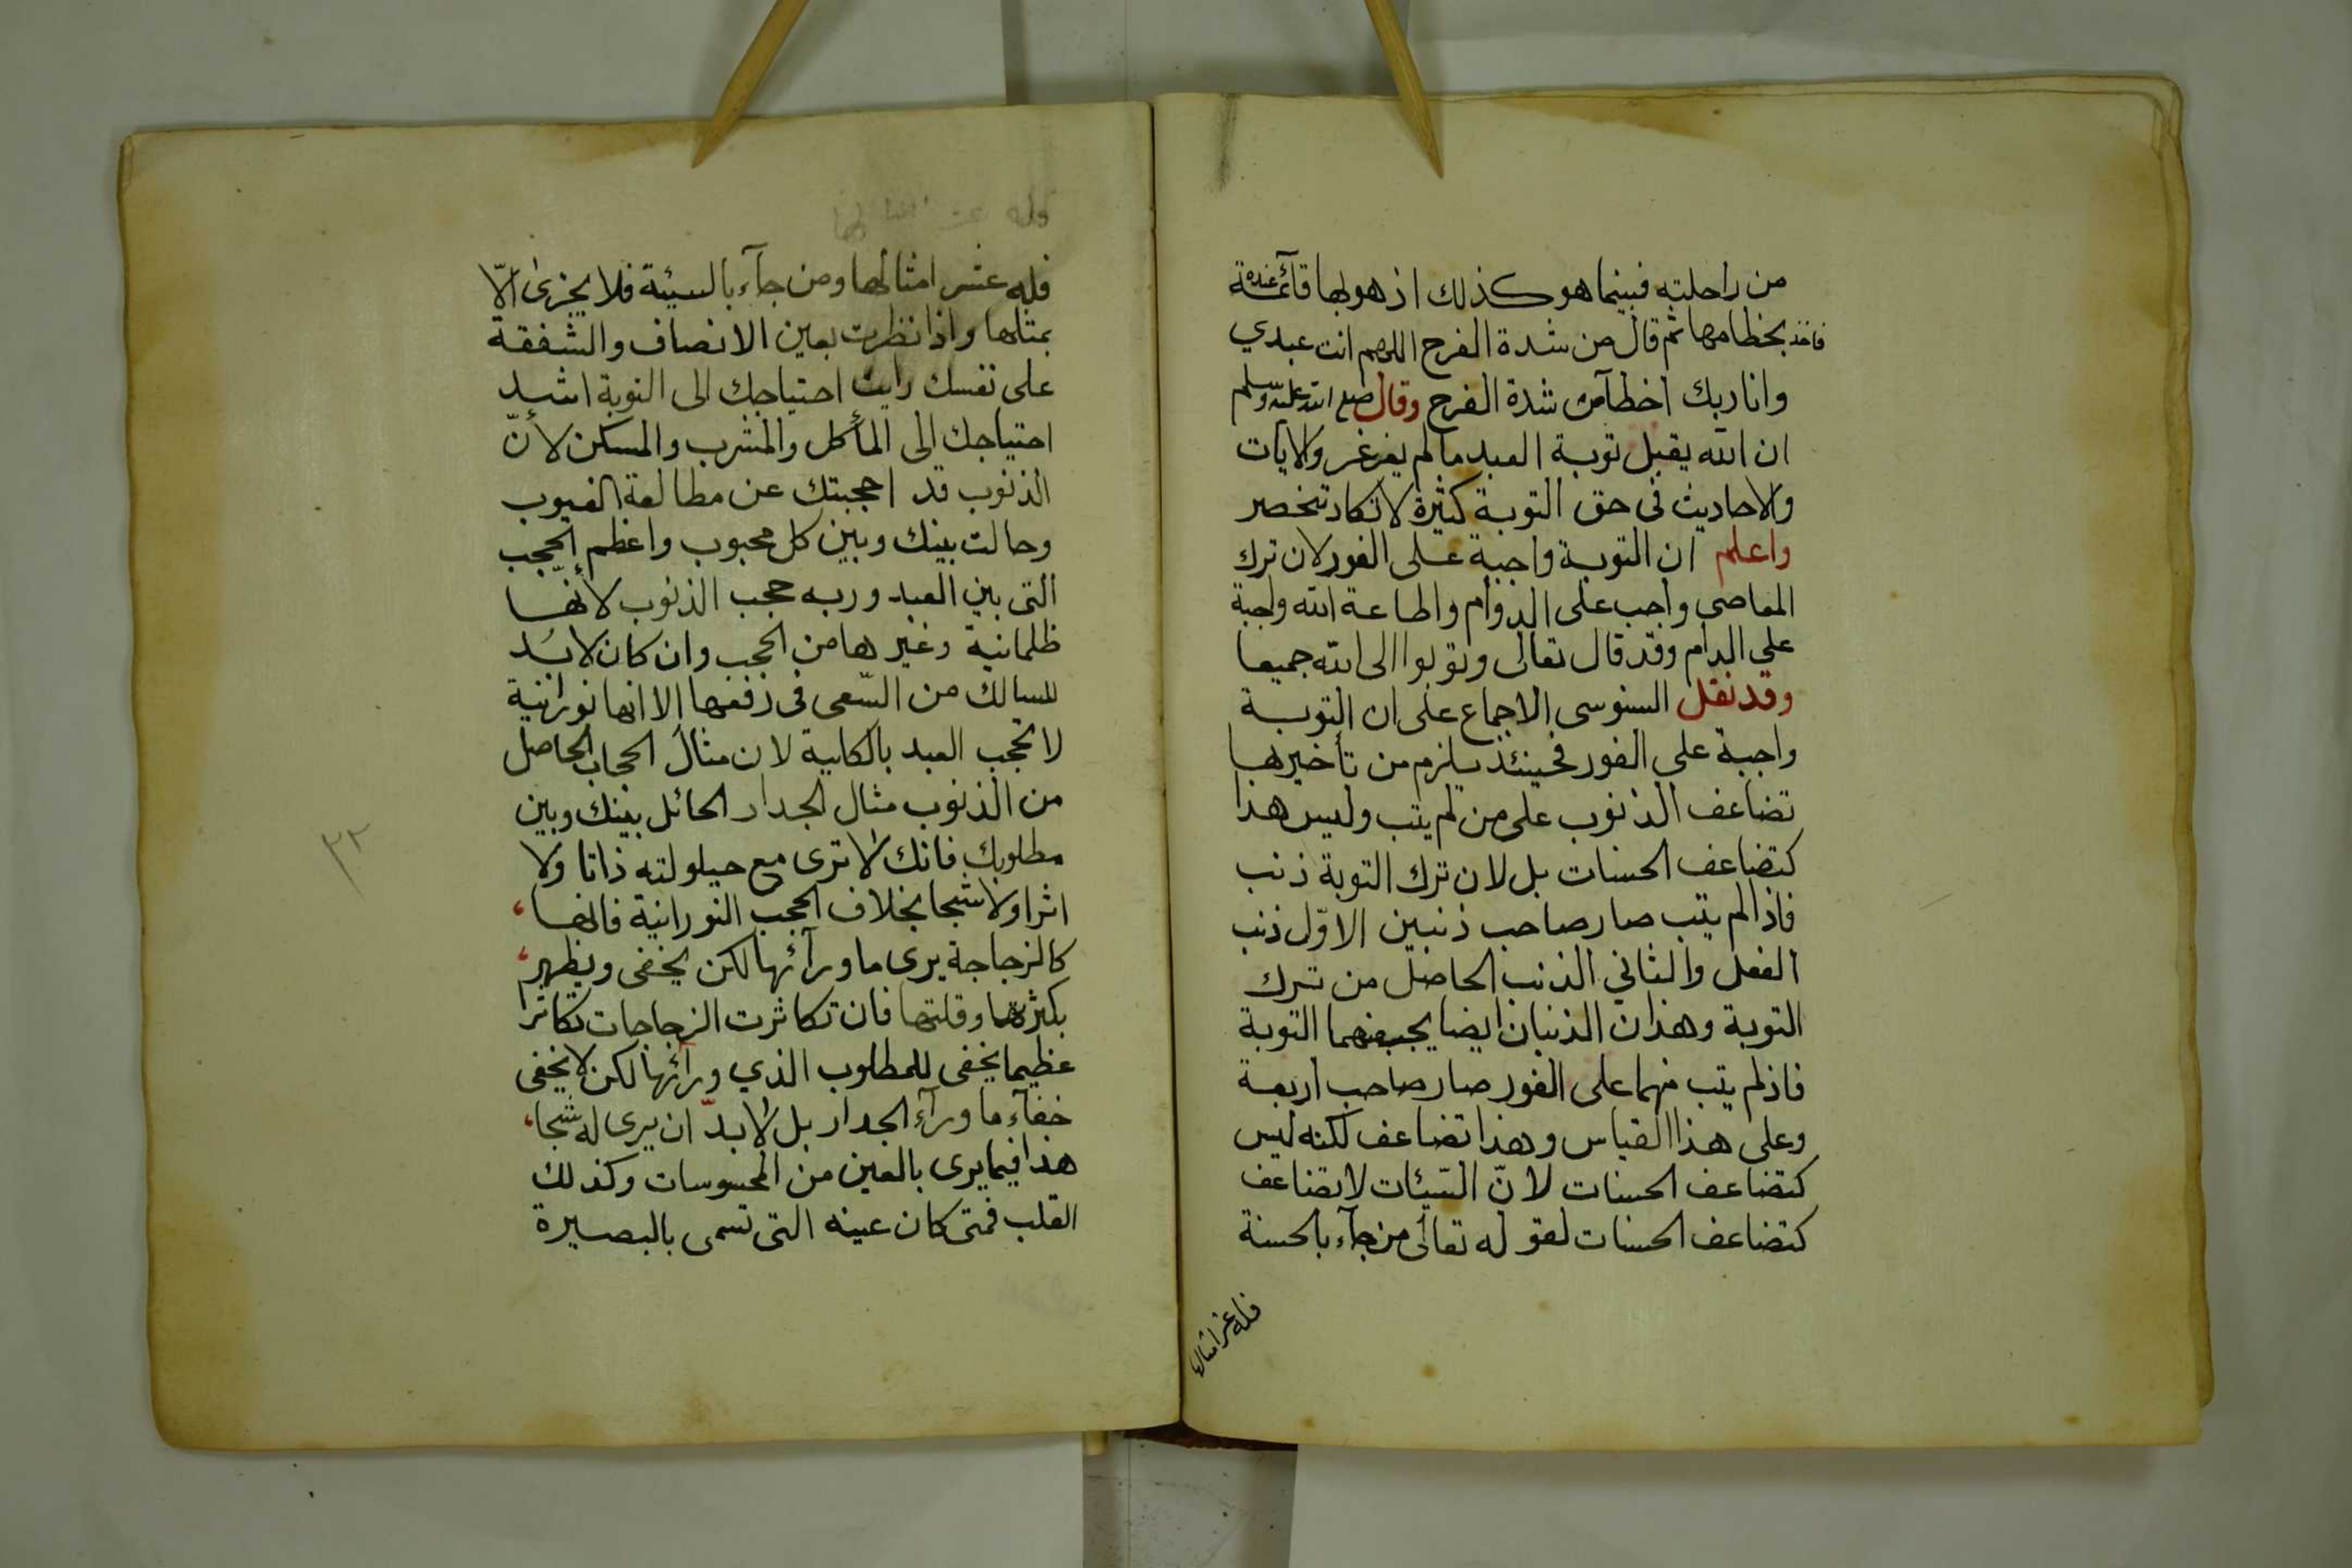 من راحلته فبينما هو كذلك اذ هو بها قآئمة عنده
فاخذ بخطامها ثم قال من شدة الفرح اللهم انت عبدي
وانا ربك اخطآ من شدة الفرح وقال صلى الله عليه وسلم
ان الله يقبل توبة العبد ما لم يغرغر والايات
والاحاديث فى حق التوبة كثيرة لا تكاد تنحصر
واعلم ان التوبة واجبة على الفور لان ترك
المعاصى واجب على الدوام واطاعة الله واجبة
على الدام وقد قال تعالى وتوبوا الى الله جميعا
وقد نقل السنوسى الاجماع على ان التوبة
واجبة على الفور فحينئذ يلزم من تأخيرها
تضاعف الذنوب على من لم يتب وليس هذا
كتضاعف الحسنات بل لان ترك التوبة ذنب
فاذا لم يتب صار صاحب ذنبين الاوّل ذنب
الفعل والثاني الذنب الحاصل من ترك
التوبة وهذان الذنبان ايضا يجب منهما التوبة
فاذ لم يتب منهما على الفور صار صاحب اربعة
وعلى هذا القياس وهذا تضاعف لكنه ليس
كتضاعف الحسنات لانّ السّيئات لا تضاعف
كتضاعف الحسنات لقوله تعالى من جآء بالحسنة
فله عشر امثالها
فله عشر امثالها
فله عشر امثالها ومن جآء بالسيئة فلا يجزى الّا
بمثلها واذا نظرت بعين الانصاف والشفقة
على نفسك رايت احتياجك الى التوبة اشد
احتياجك الى المأكل والمشرب والمسكن لأنّ
الذنوب قد احجبتك عن مطالعة الغيوب
وحالت بينك وبين كل محبوب واعظم الحجب
التى بين العبد وربه حجب الذنوب لأنّها
ظلمانية وغيرها من الحجب وان كان لا بد
للسالك من السّعى فى رفعها الا انها نورانية
لا تحجب العبد بالكلية لان مثال الحجاب الحاصل
من الذنوب مثال الجدار الحائل بينك وبين
مطلوبك فانك لا ترى مع حيلولته ذاتا ولا
اثرا ولا شبحا بخلاف الحجب النورانية فانها
كالزجاجة يرى ما ورآئها لكن يخفى ويظهر
بكثرتها وقلتها فان تكاثرت الزجاجات تكاثرا
عظيما يخفى للمطلوب الذي ورآئها لكن لا يخفى
خفآء ما ورآء الجدار بل لا بدّ ان يرى له شبحا
هذا فيما يرى بالعين من المحسوسات وكذلك
القلب فمتى كان عينه التى تسمى بالبصيرة
٣٢